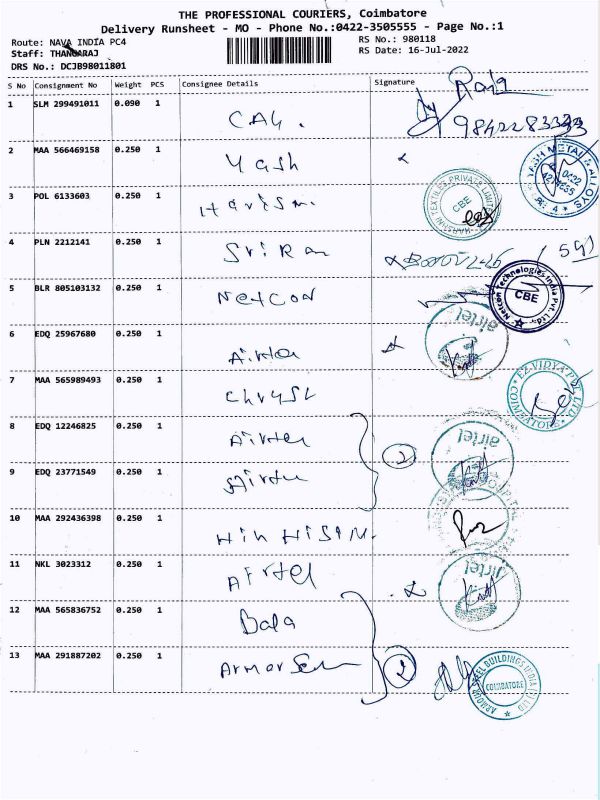 THE PROFESSIONAL COURIERS, Coimbatore
Delivery Runsheet - MO - Phone No.:0422-3505555 - Page No.:1
Route: NAVA INDIA PC4 RS No.: 980118
Staff: THANGARAJ RS Date: 16-Jul-2022
DRS No.: DCJB98011801
S No Consignment No Weight PCS Consignee Details Signature
1 SLM 299491011 0.090 1
2 MAA 566469158 0.250 1 Yash
3 POL 6133603 0.250 1
HARSHNI TEXTILES PRIVATE LIMITED CBE
4 PLN 2212141 0.250 1
5 BLR 805103132 0.250 1 Netcon
Netcon Technologies India Pvt. Ltd. CBE
6 EDQ 25967680 0.250 1 Airtel
airtel
7 MAA 565989493 0.250 1
COIMBATORE
8 EDQ 12246825 0.250 1 Airtel
2 airtel
9 EDQ 23771549 0.250 1 Airtel
10 MAA 292436398 0.250 1
11 NKL 3023312 0.250 1 Airtel
airtel
12 MAA 565836752 0.250 1 Bala
13 MAA 291887202 0.250 1
2
ARMOUR STEEL BUILDINGS INDIA (P) LTD COIMBATORE